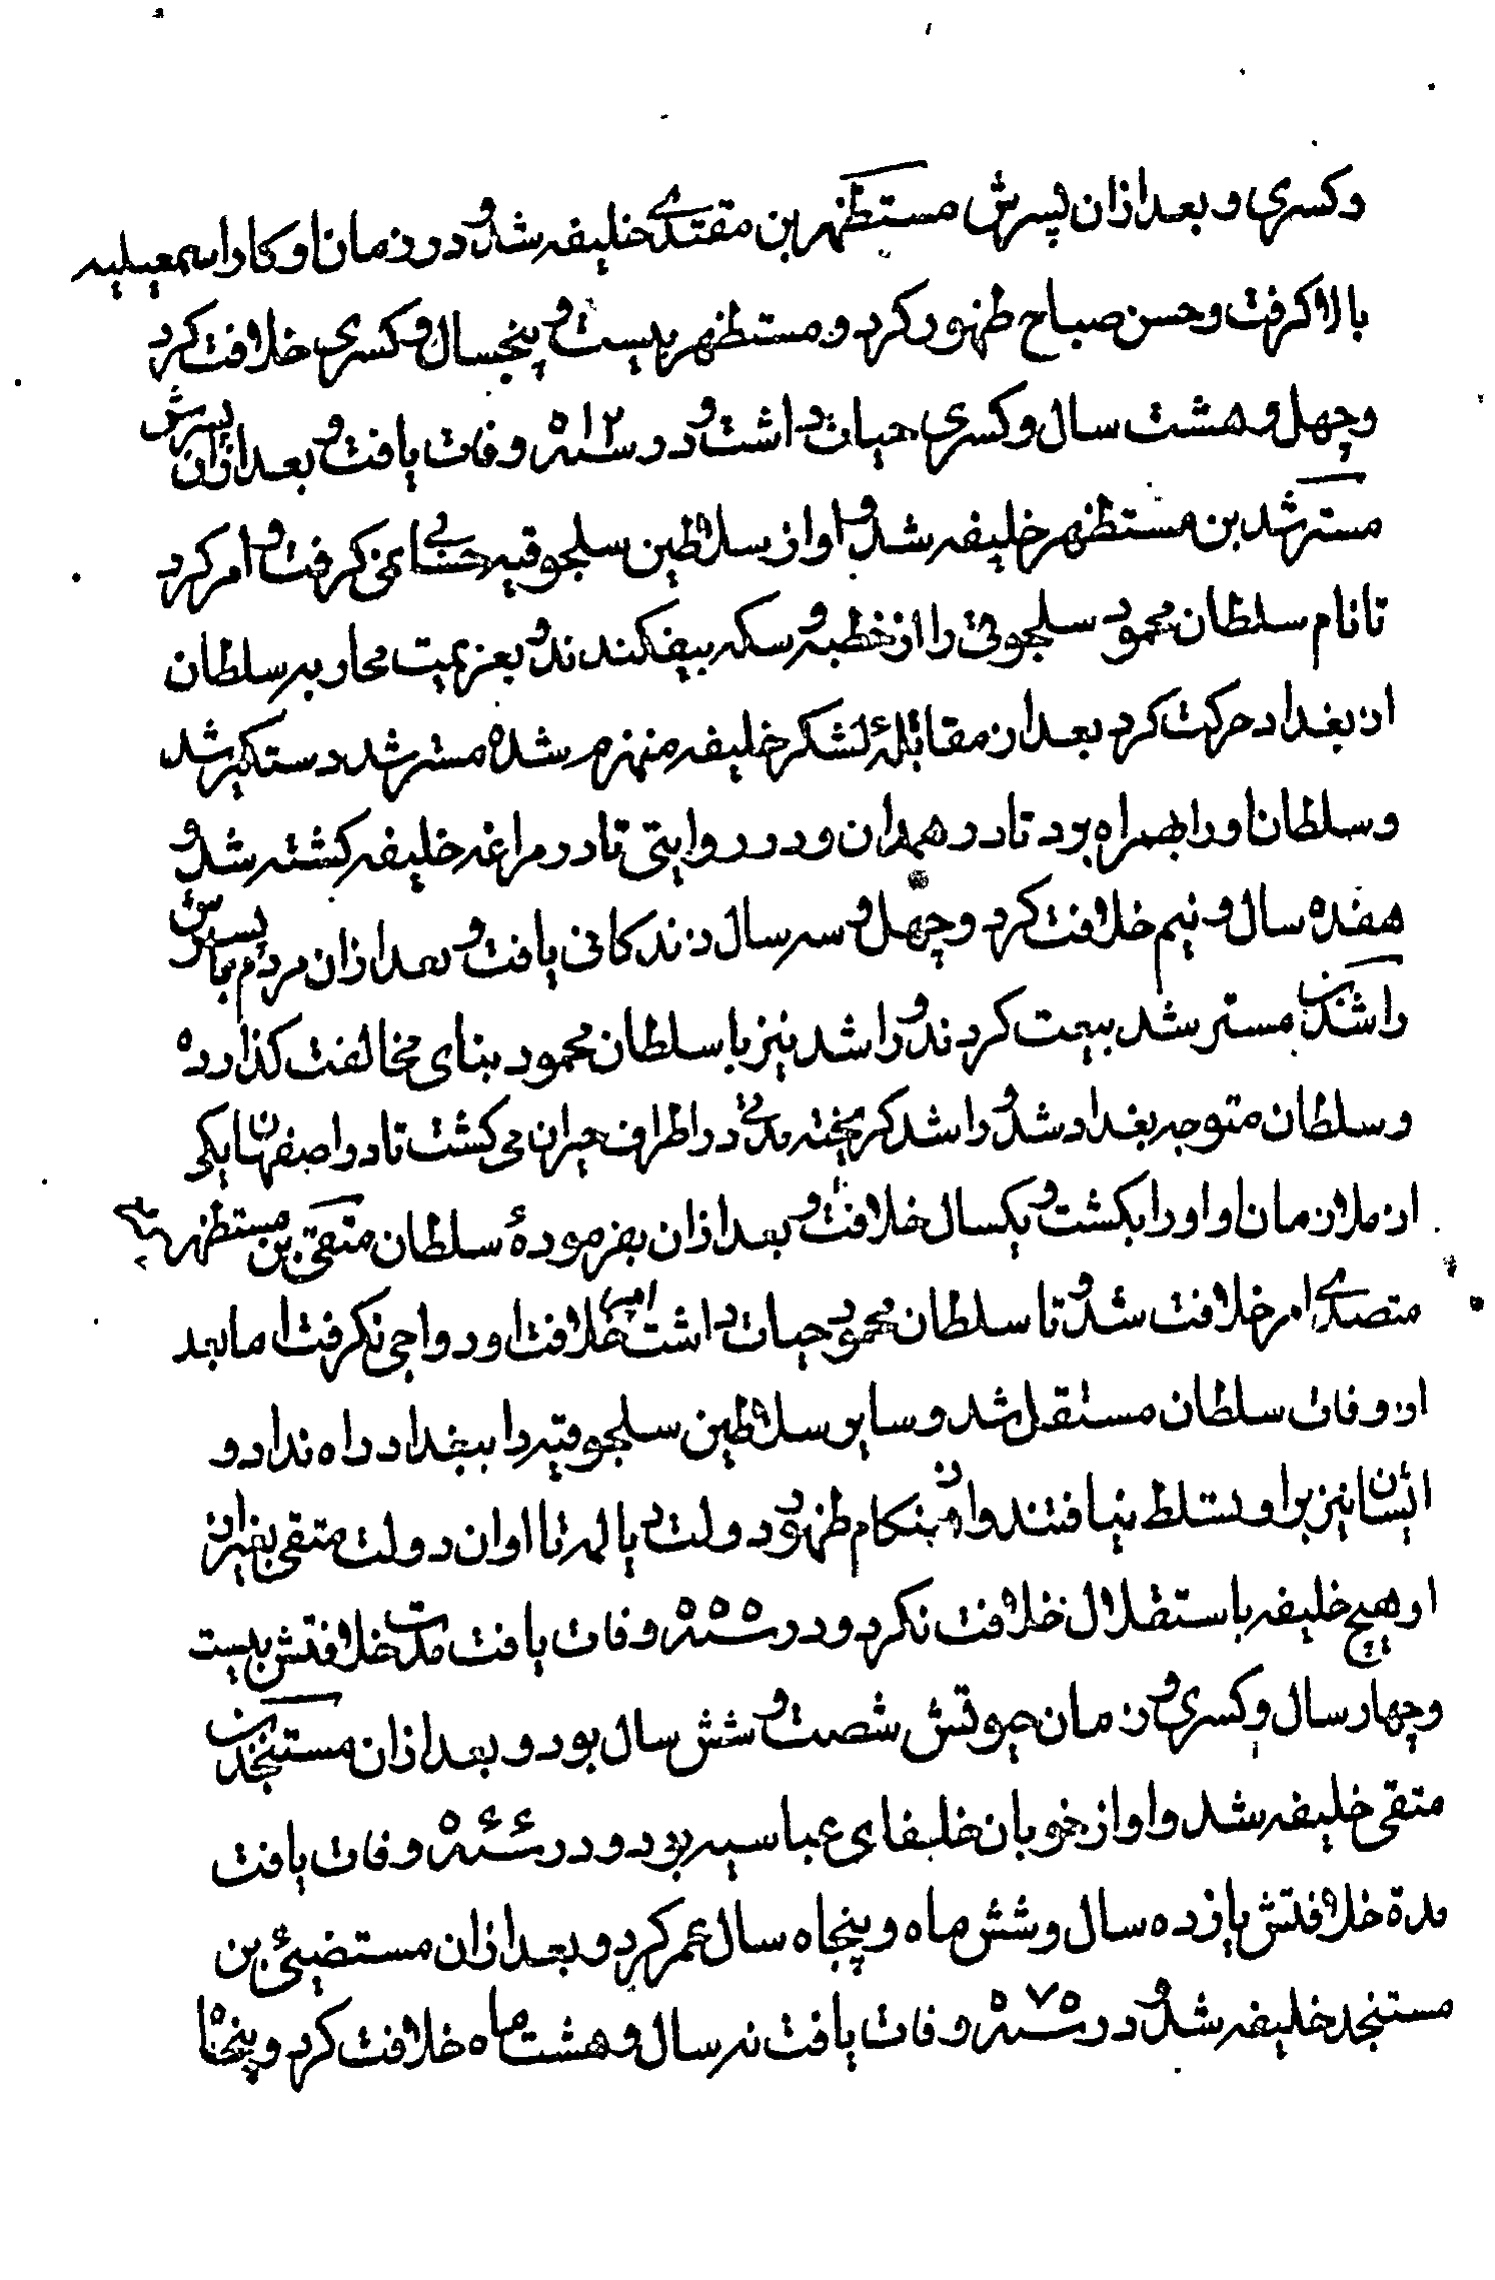 وکسری و بعد ازان پسرش مستظهر بن مقتدی خلیفه شد و در زمان او کار اسمعیلیه
بالا کرفت و حسن صباح ظهور کرد و مستظهر بیست و پنجسال و کسری خلافت کرد
و چهل و هشت سال و کسری حیات داشت و در سنه ۵۱۲ وفات یافت و بعد ازان پسرش
مسترشد بن مستظهر خلیفه شد و او از سلاطین سلجوقیه حسابی نمی کرفت و امر کرد
تا نام سلطان محمود سلجوقی را از خطبه و سکه بیفکندند و بعزیمت محاربه سلطان
از بغداد حرکت کرد بعد از مقاتلهٔ لشکر خلیفه منهزم شده مسترشد دستکیر شد
و سلطان او را بهمراه برد تا در همدان و در روایتی تا در مراغه خلیفه کشته شد و
هفده سال و نیم خلافت کرد و چهل و سه سال زندکانی یافت و بعد ازان مردم با پسرش
راشد بن مسترشد بیعت کردند و راشد نیز با سلطان محمود بنای مخالفت کذارده
و سلطان متوجه بغداد شد و راشد کریخته مدتی در اطراف حیران می کشت تا در اصفهان یکی
از ملازمان او او را بکشت و یکسال خلافت و بعد ازان بفرمودهٔ سلطان متقی بن مستظهر
متصدی امر خلافت شد و تا سلطان محمود حیات داشت امر خلافت او رواجی نکرفت اما بعد
از وفات سلطان مستقل شد و سایر سلاطین سلجوقیه را ببغداد راه نداد و
ایشان نیز بر او تسلط نیافتند و از هنکام ظهور دولت دیالمه تا اوان دولت متقی بغیر از
او هیچ خلیفه باستقلال خلافت نکرد و در سنه ۵۵۵ وفات یافت مدت خلافتش بیست
و چهار سال و کسری و زمان حیوتش شصت و شش سال بود و بعد ازان مستنجد بن
متقی خلیفه شد و او از خوبان خلفای عباسیه بود و در سنه ۵۶۶ وفات یافت
مدة خلافتش یازده سال و شش ماه و پنجاه سال عمر کرد و بعد ازان مستضیئ بن
مستنجد خلیفه شد و در سنه ۵۷۵ وفات یافت نه سال و هشت ماه خلافت کرد و پنجاه